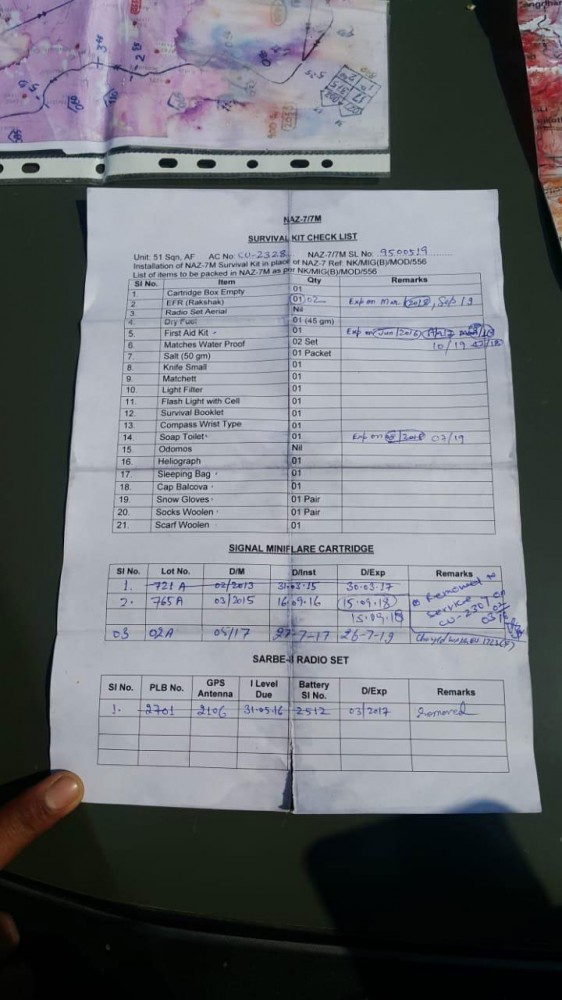 NAZ-7/7M
SURVIVAL KIT CHECK LIST
Unit: 51 Sqn, AF AC No: CU-2328 NAZ-7/7M SL No: 9500519
Installation of NAZ-7M Survival Kit in place of NAZ-7 Ref: NK/MIG(B)/MOD/556
List of items to be packed in NAZ-7M as per NK/MIG(B)/MOD/556
Sl No. Item Qty Remarks
1. Cartridge Box Empty 01
2. EFR (Rakshak) 01 02 Exp on Mar 2018, Sep 19
3. Radio Set Aerial Nil
4. Dry Fuel 01 (45 gm)
5. First Aid Kit 01 Exp on Jun/2016
6. Matches Water Proof 02 Set 10/19
7. Salt (50 gm) 01 Packet
8. Knife Small 01
9. Matchett 01
10. Light Filter 01
11. Flash Light with Cell 01
12. Survival Booklet 01
13. Compass Wrist Type 01
14. Soap Toilet 01 Exp on 2018 07/19
15. Odomos Nil
16. Heliograph 01
17. Sleeping Bag 01
18. Cap Balcova 01
19. Snow Gloves 01 Pair
20. Socks Woolen 01 Pair
21. Scarf Woolen 01
SIGNAL MINIFLARE CARTRIDGE
Sl No. Lot No. D/M D/Inst D/Exp Remarks
1. 721 A 02/2013 31.03.15 30.03.17
2. 765A 03/2015 16.09.16 15.09.18 Removed
Service
15.09.18 CU-2307
03 02A 05/17 27-7-17 26-7-19
SARBE-8 RADIO SET
Sl No. PLB No. GPS Antenna I Level Due Battery Sl No. D/Exp Remarks
1. 2701 2106 31.05.16 2512 03/2017 Removed